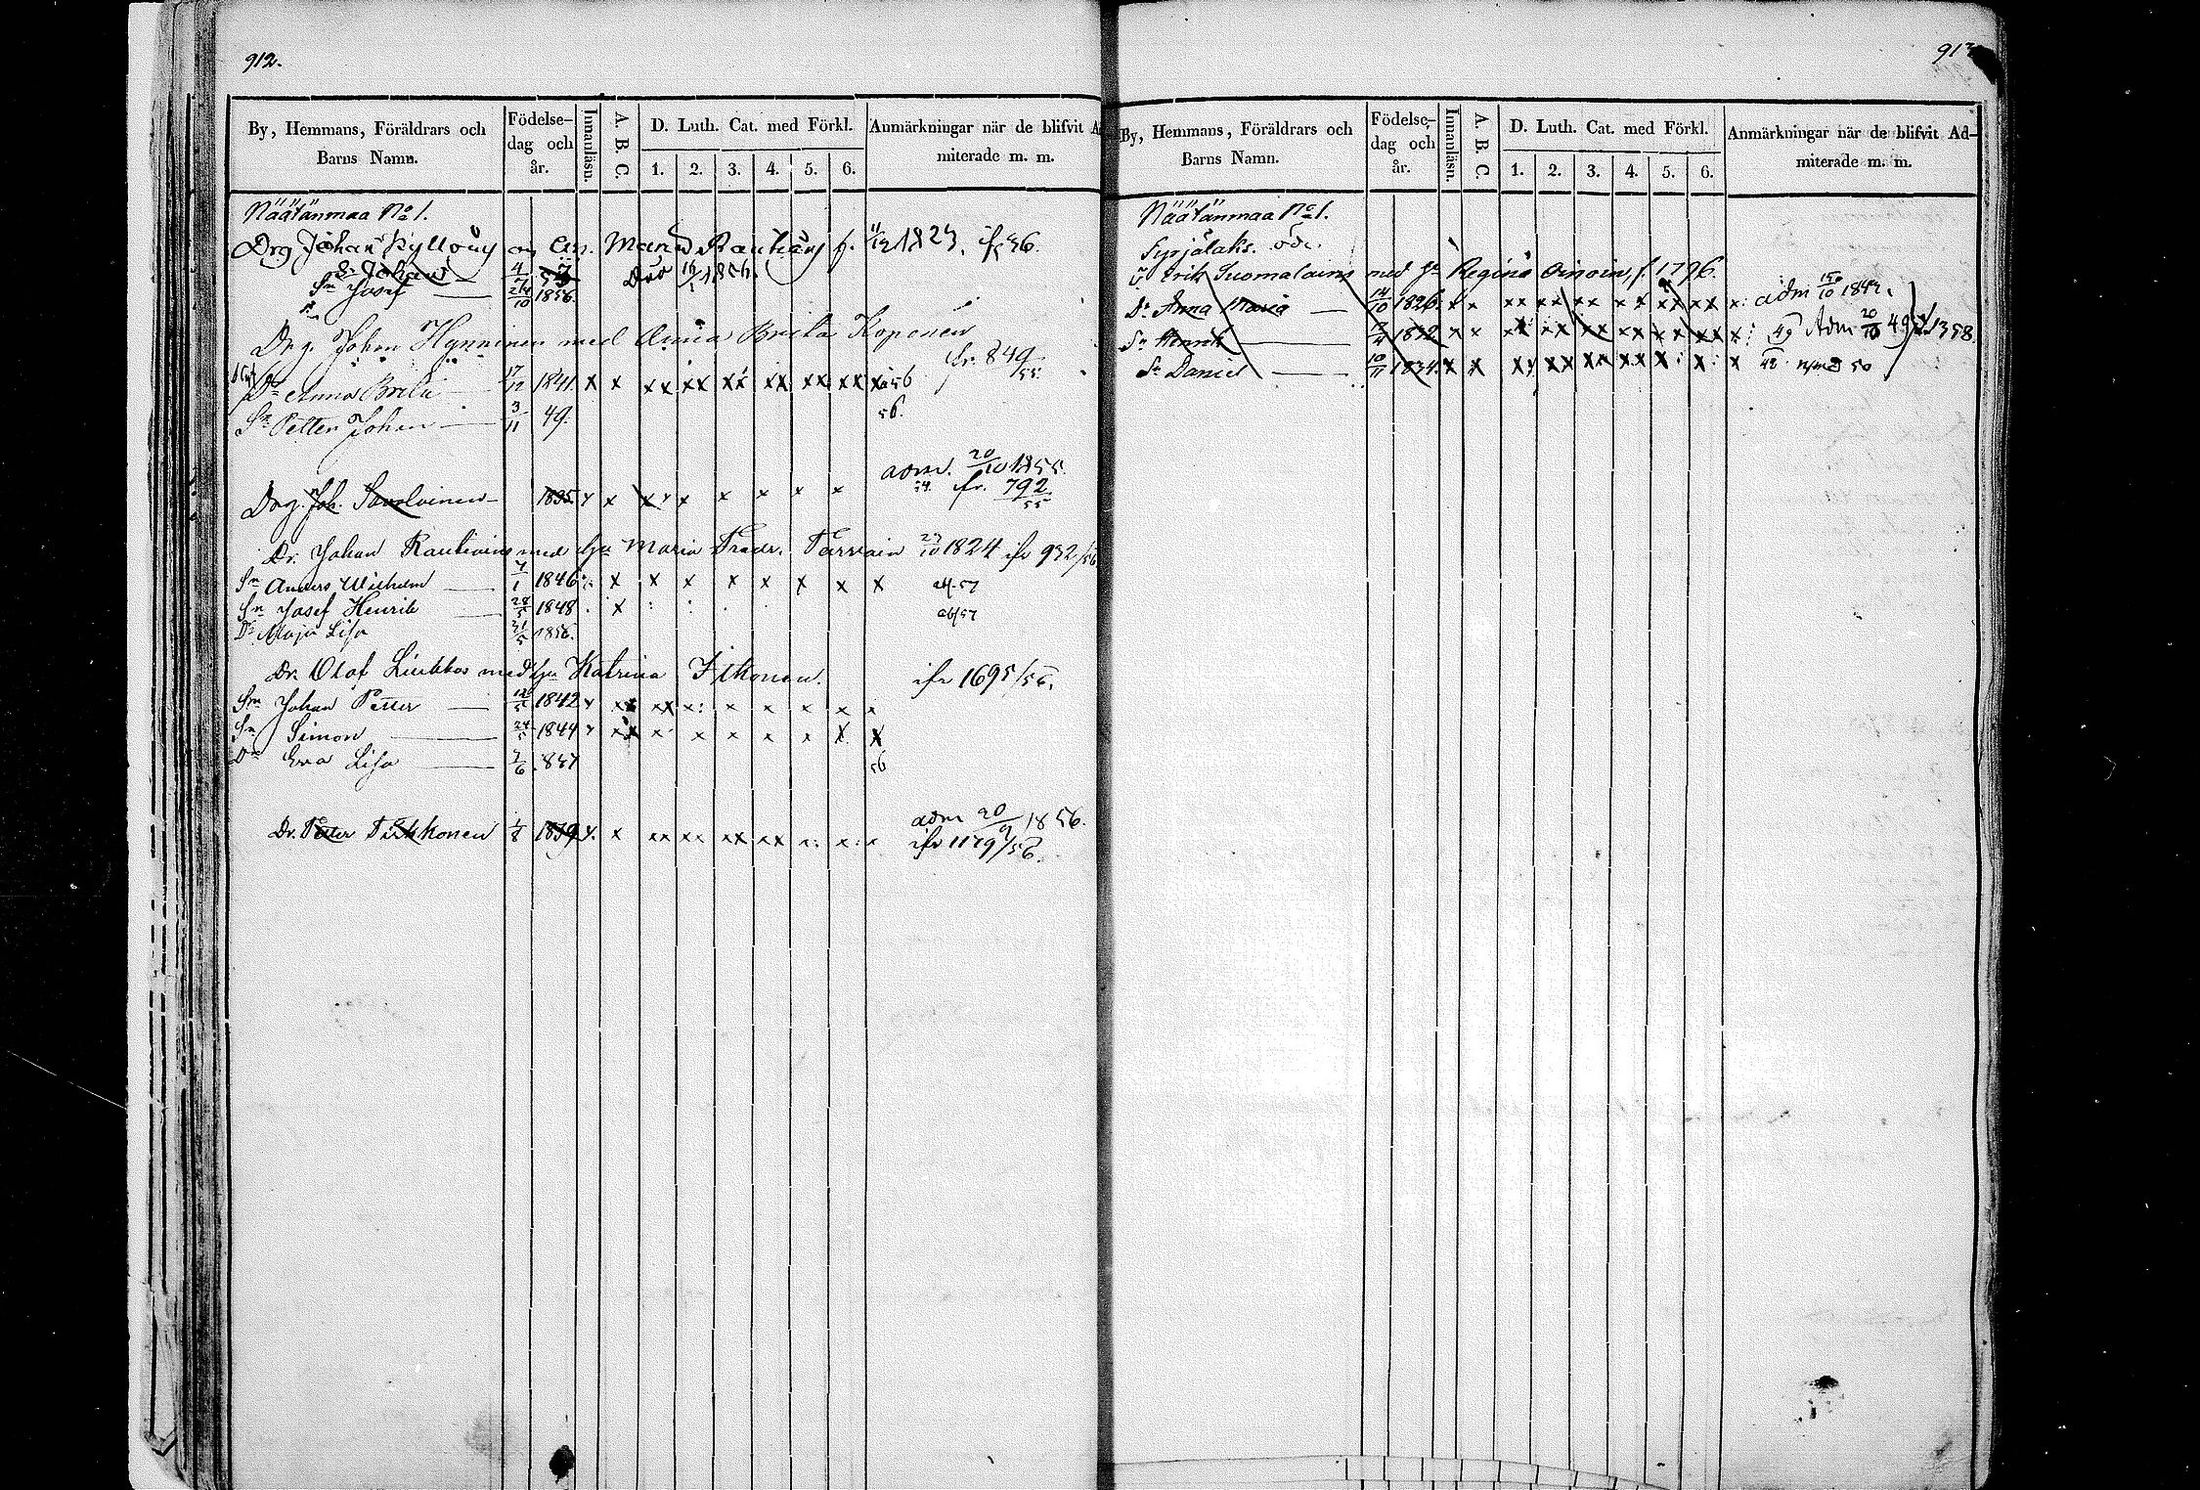 912.
By, Hemmans, Föräldrars och Barns Namn.
Födelse-dag och år.
Innanläsn.
A. B. C.
D. Luth. Cat. med Förkl.
1. 2. 3. 4. 5. 6.
Anmärkningar när de blifvit Admiterade m. m.
Näätänmaa No 1.
Drg Johan Pyllöny 1823. ifr 56.
Sn Johan 4/7 53 Död 16/2 1854
Sn Josef 24/10 1856.
Drg. Johan Hynninen med Anna Brita Koponen
fr. 849/55
Dr Anna Brita 17/12 1841. x x xx xx xx xx xx xx x 56
Sn Petter Johan 3/11 49. 56.
adm. 20/10 1855
Drg. Joh. Savolainen 1835 x x x x x x x x fr. 792/55
Dr. Johan Rautiain med hu Maria Fredr. Tarvain 23/10 1824 ifr 932/56
Sn Anders Wilhelm 7/1 1846 x x x x x x x x 57
Sn Josef Henrik 28/5 1848 x 57
Dr Maja Lisa 31/5 1856.
Dr. Olof Liukkos med hu Katrina Itkonen. ifr 1695/56.
Sn Johan Petter 12/5 1842 x xx xx x: x x x x x
Sn Simon 24/5 1844 x xx x x x x x x x
Dr Eva Lisa 2/6 847 56
adm 20/9 1856.
Dr. Petter Tirkkonen 1/8 1839 x. x xx xx xx xx x: x: x ifr 1179/56.
913
By, Hemmans, Föräldrars och Barns Namn.
Födelse-dag och år.
Innanläsn.
A. B. C.
D. Luth. Cat. med Förkl.
1. 2. 3. 4. 5. 6.
Anmärkningar när de blifvit Admiterade m. m.
Näätänmaa No 1.
Syrjälaks. öde.
Erik Suomalains med hu Regina Oinoin, f. 1796.
Dr Anna Maria 14/10 1826. x x xx xx xx x x xx xx x: adm 15/10 1842.
Sn Henrik 12/4 1832 x x xx xx xx xx xx xx x: 49 Adm 20/10 49 1358.
Sn Daniel 10/11 1834. x x xx xx xx xx x: x: x 48 50